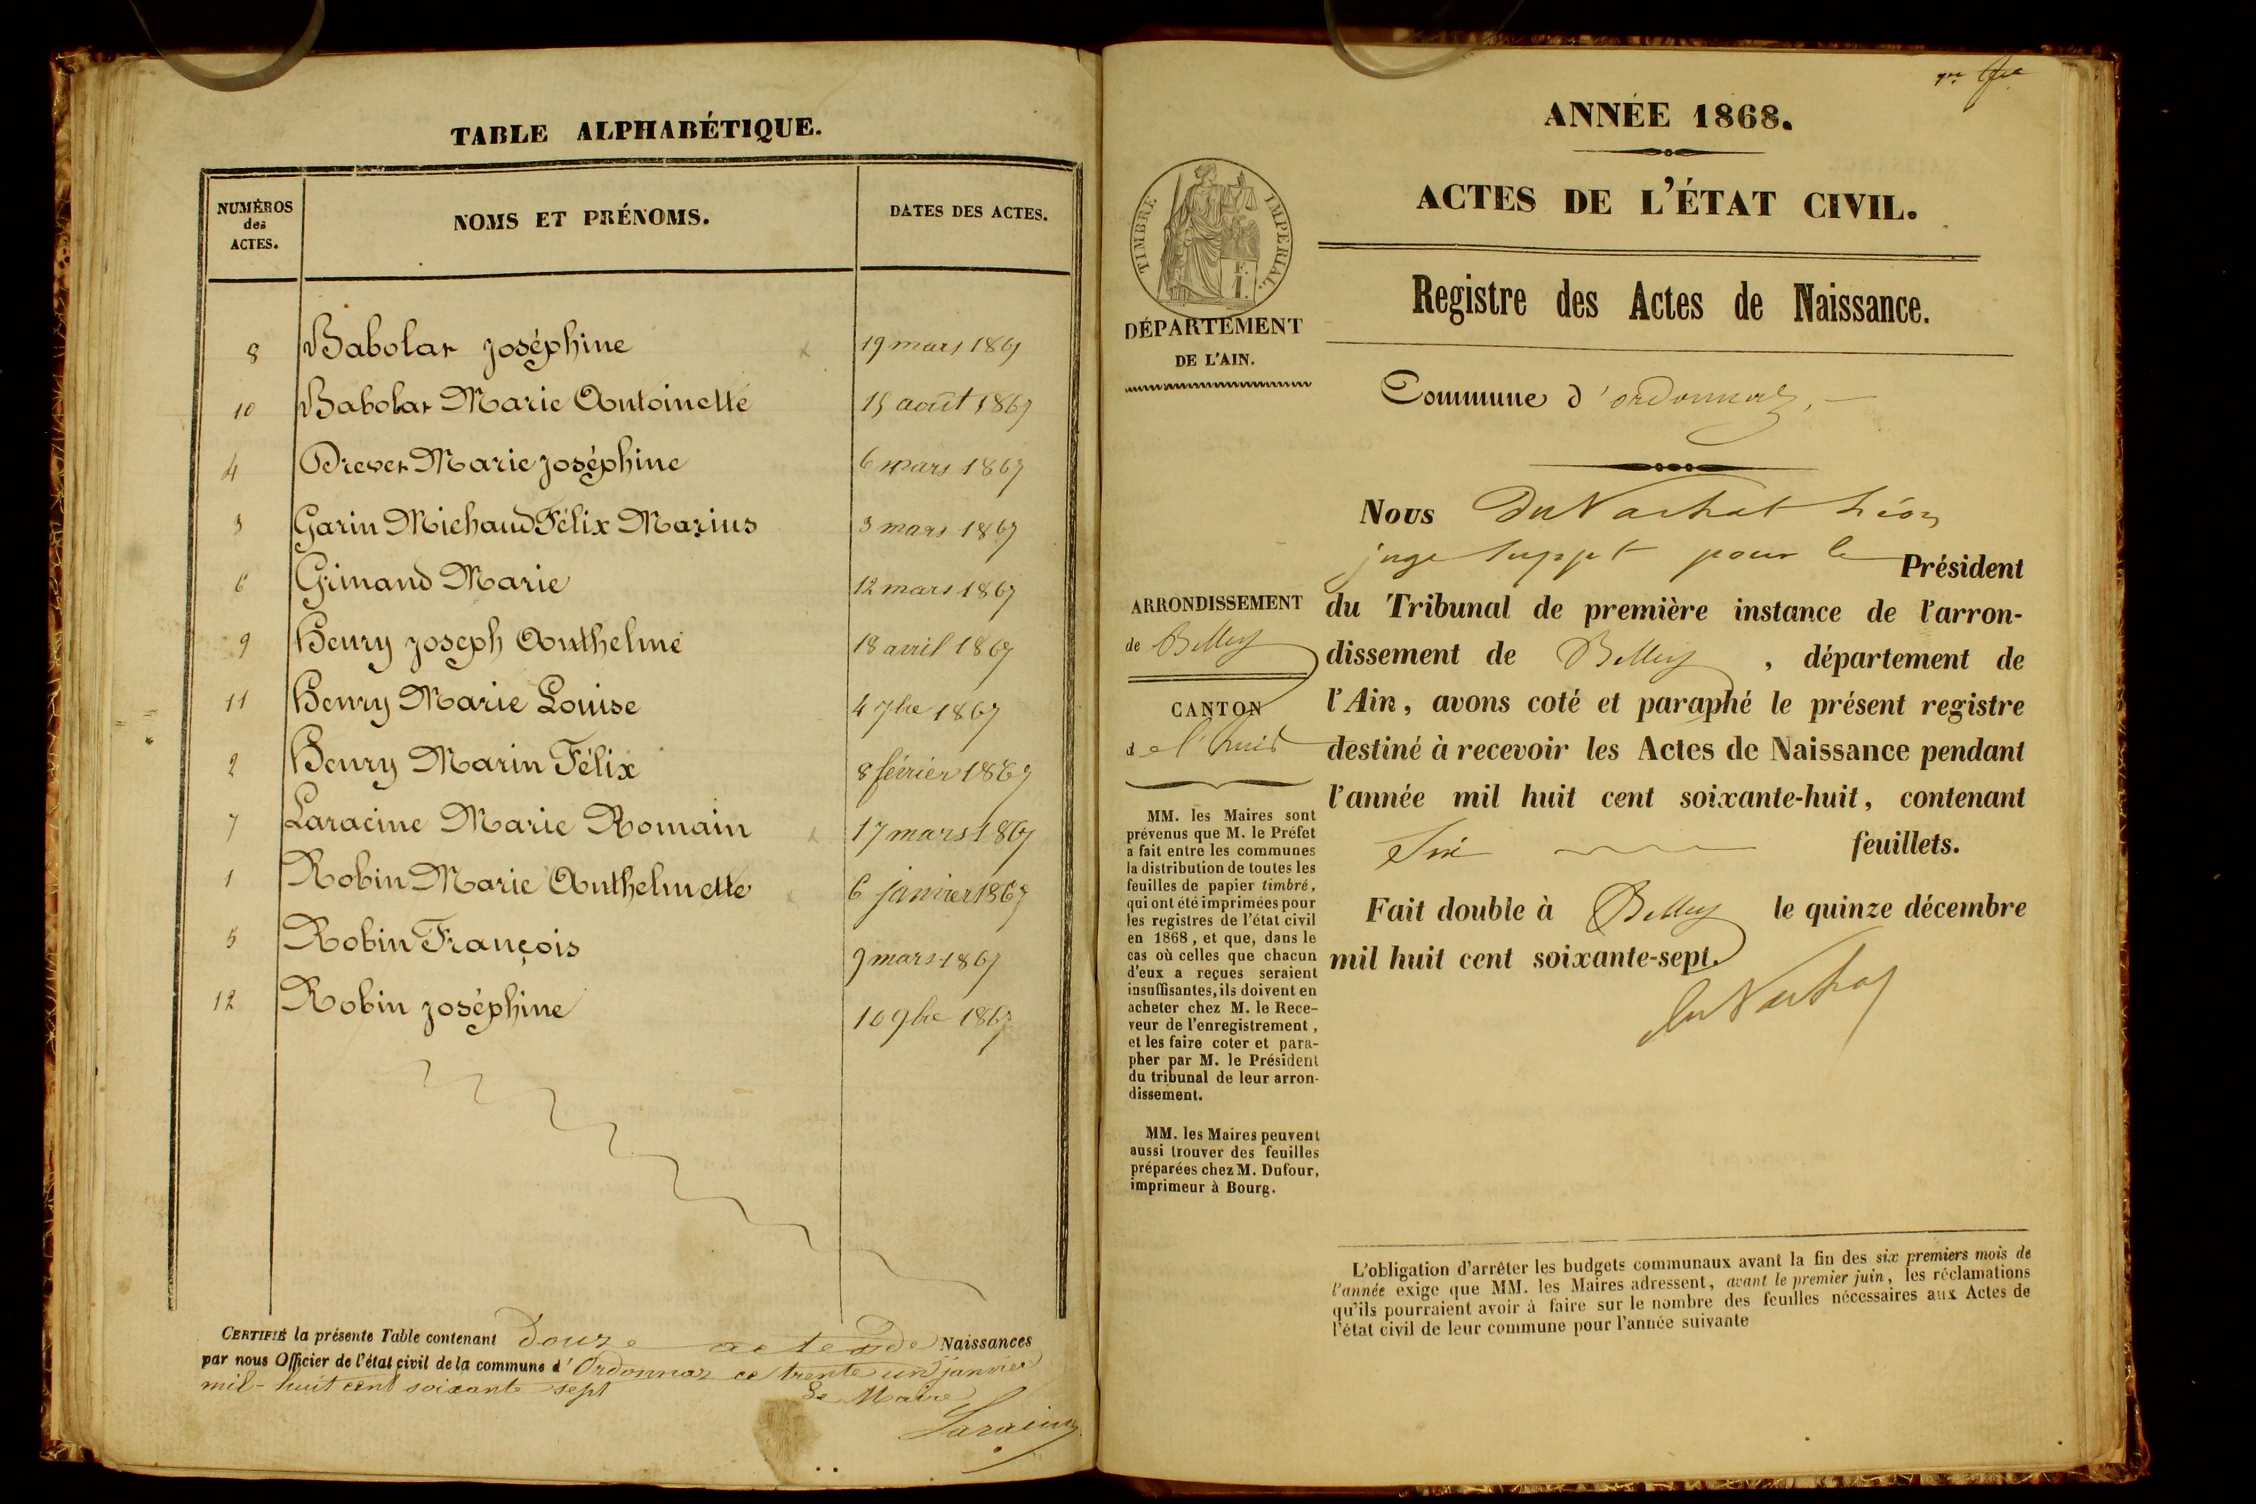 TABLE ALPHABÉTIQUE.
NUMÉROS
des
ACTES.
NOMS ET PRÉNOMS.
DATES DES ACTES.
8 Babolat Joséphine 19 mars 1867
10 Babolat Marie Antoinette 15 août 1867
4 Drevet Marie Joséphine 6 mars 1867
3 Garin Michaud Félix Marius 3 mars 1867
6 Grimand Marie 12 mars 1867
9 Henry Joseph Anthelme 18 avril 1867
11 Henry Marie Louise 4 7bre 1867
2 Henry Marin Félix 8 février 1867
7 Laracine Marie Romain 17 mars 1867
1 Robin Marie Anthelmette 6 janvier 1867
5 Robin François 9 mars 1867
12 Robin Joséphine 10 9bre 1867
CERTIFIÉ la présente Table contenant Douze actes de Naissances
par nous Officier de l'état civil de la commune d'Ordonnaz ce trente un janvier
mil-huit cent soixante sept
Le Maire
Laracine
ANNÉE 1868.
ACTES DE L'ÉTAT CIVIL.
TIMBRE IMPÉRIAL.
DÉPARTEMENT
DE L'AIN.
Registre des Actes de Naissance.
Commune d'ordonnaz.
ARRONDISSEMENT
de Belley
CANTON
de l'huis
MM. les Maires sont
prévenus que M. le Préfet
a fait entre les communes
la distribution de toutes les
feuilles de papier timbré,
qui ont été imprimées pour
les registres de l'état civil
en 1868, et que, dans le
cas où celles que chacun
d'eux a reçues seraient
insuffisantes, ils doivent en
acheter chez M. le Rece-
veur de l'enregistrement,
et les faire coter et para-
pher par M. le Président
du tribunal de leur arron-
dissement.
MM. les Maires peuvent
aussi trouver des feuilles
préparées chez M. Dufour,
imprimeur à Bourg.
Nous Du Vachat Léon
juge suppt pour le Président
du Tribunal de première instance de l'arron-
dissement de Belley, département de
l'Ain, avons coté et paraphé le présent registre
destiné à recevoir les Actes de Naissance pendant
l'année mil huit cent soixante-huit, contenant
Six feuillets.
Fait double à Belley le quinze décembre
mil huit cent soixante-sept.
Du Vachat
L'obligation d'arrêter les budgets communaux avant la fin des six premiers mois de
l'année exige que MM. les Maires adressent, avant le premier juin, les réclamations
qu'ils pourraient avoir à faire sur le nombre des feuilles nécessaires aux Actes de
l'état civil de leur commune pour l'année suivante